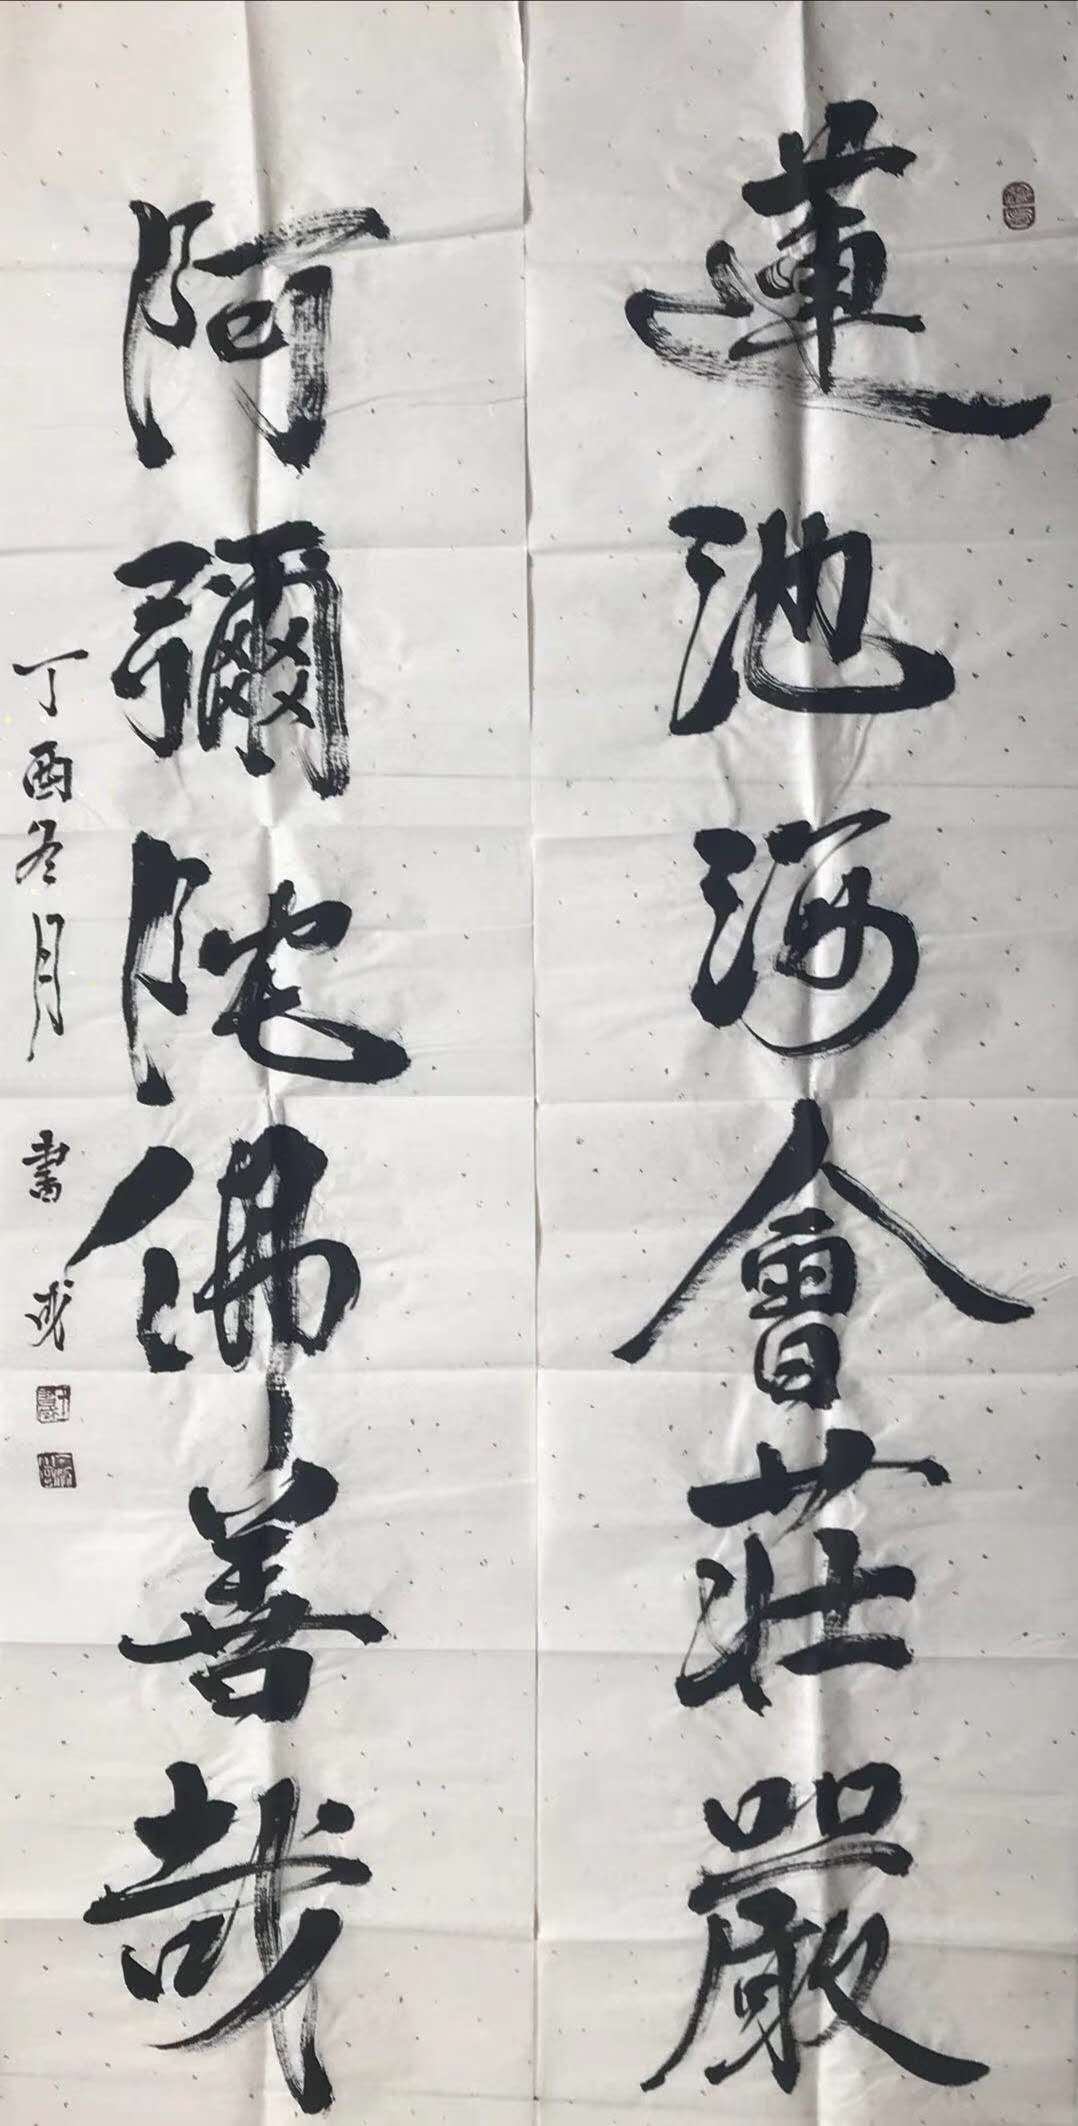 蓮池海會莊嚴
阿彌陀佛善哉
丁酉冬月 書成